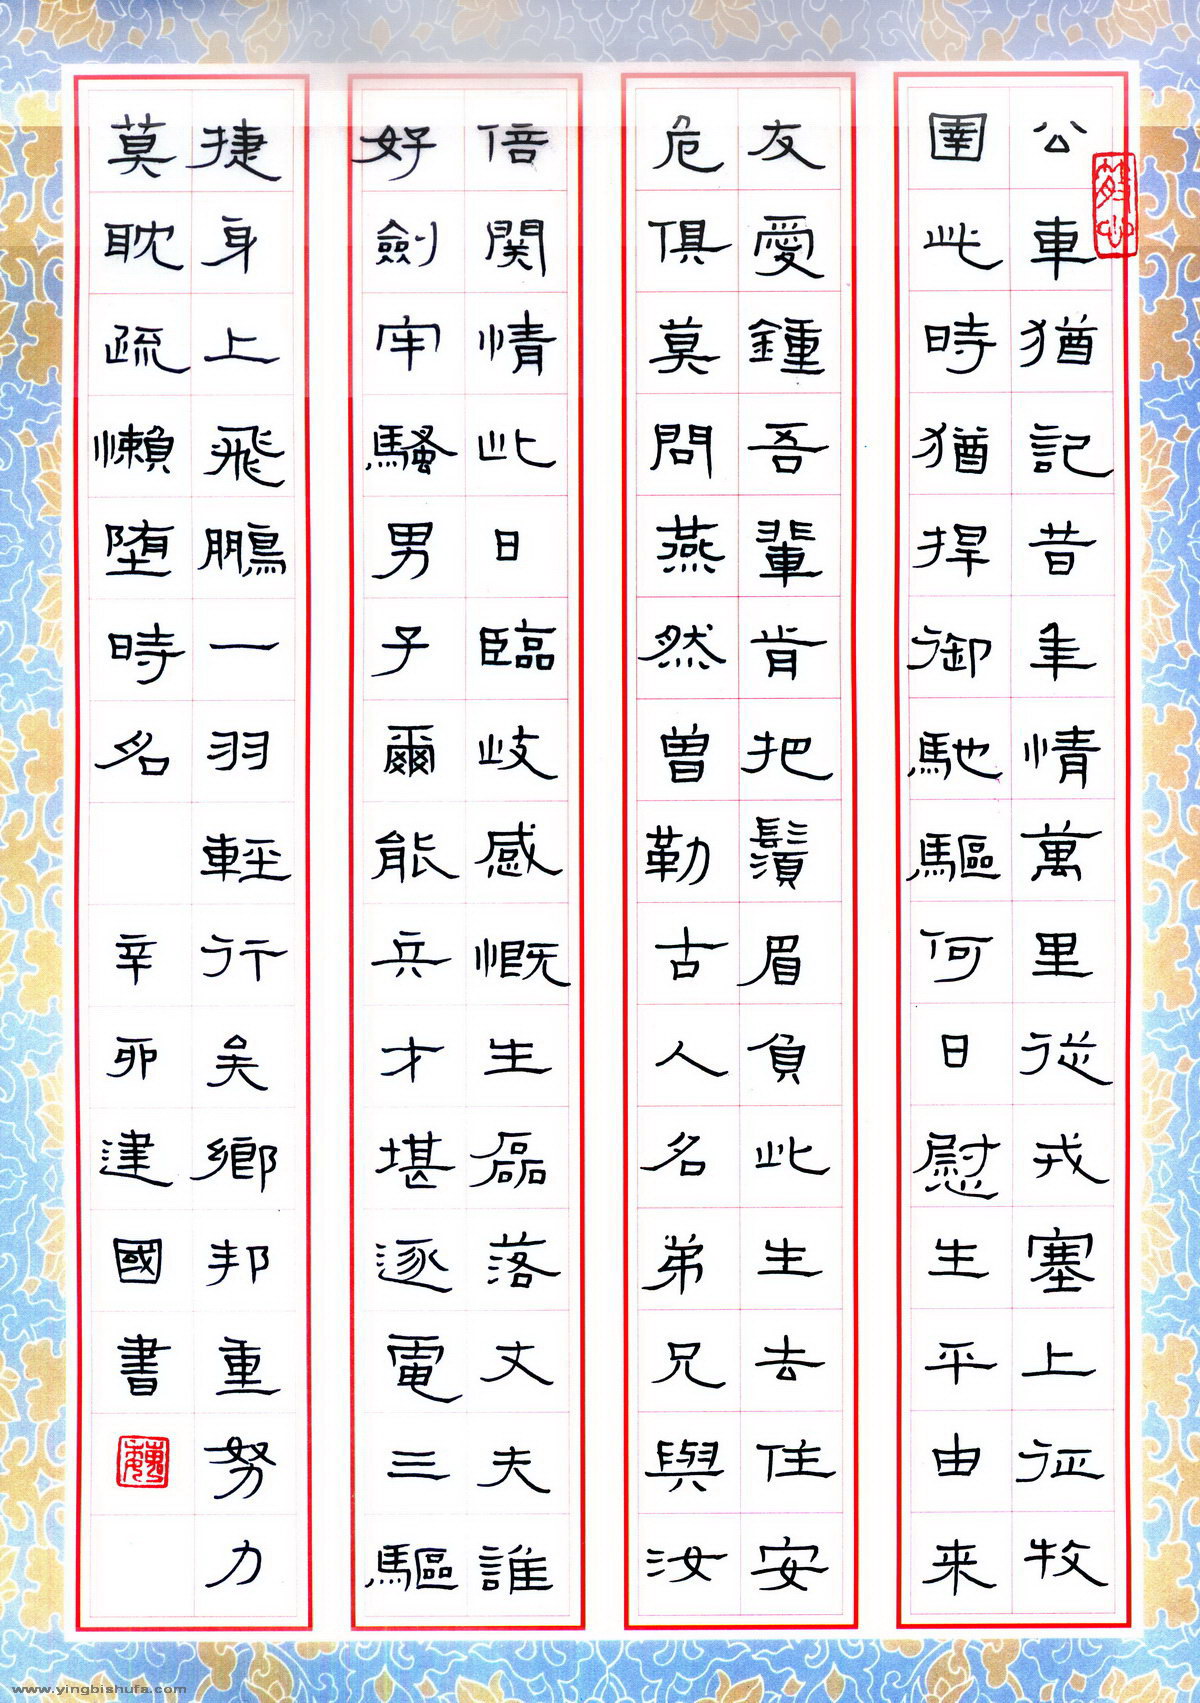 公車猶記昔年情萬里從戎塞上征牧
圉此時猶捍御馳驅何日慰生平由来
友愛鍾吾輩肯把鬚眉負此生去住安
危俱莫問燕然曽勒古人名弟兄與汝
倍関情此日臨歧感慨生磊落丈夫誰
好劍牢騷男子爾能兵才堪逐電三驅
捷身上飛鵬一羽輕行矣鄉邦重努力
莫耽疏懶堕時名 辛卯建國書
www.yingbishufa.com